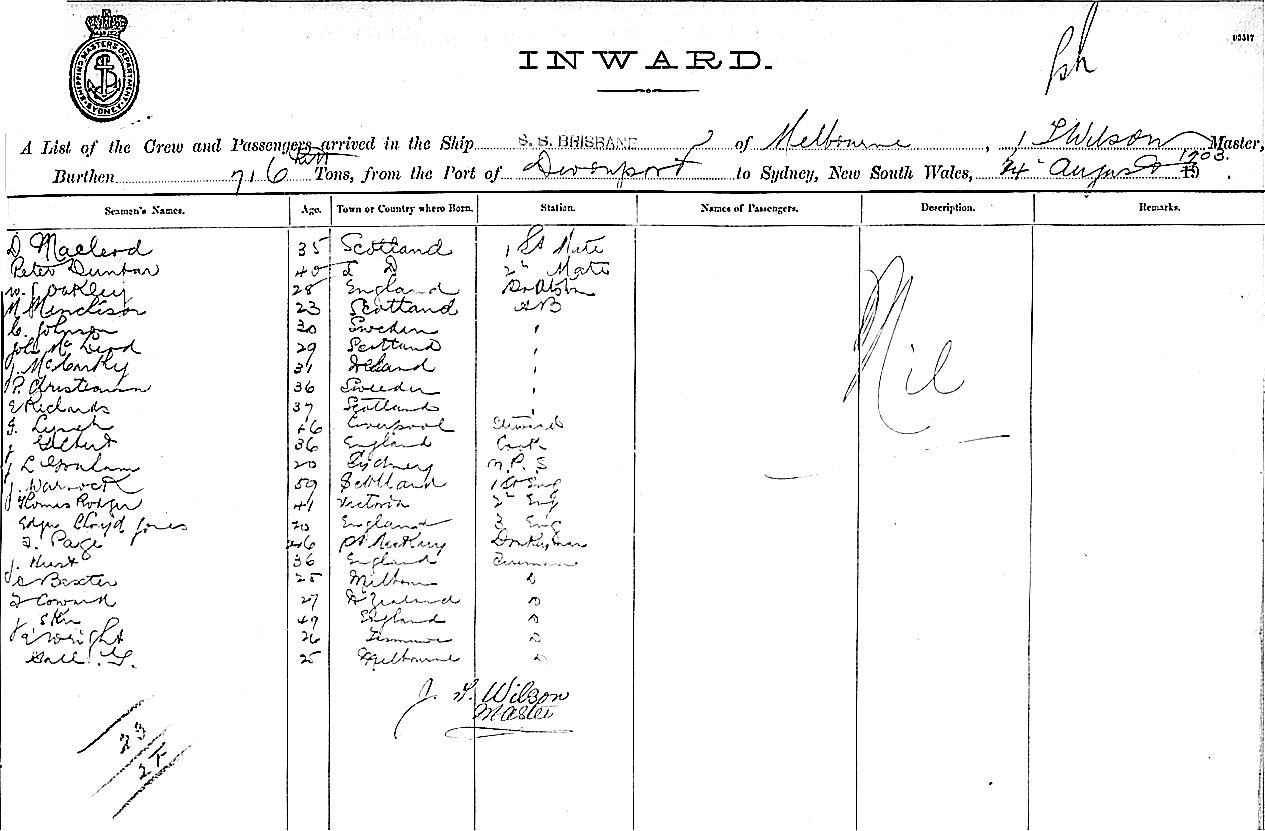 SHIPPING MASTERS DEPARTMENT
SYDNEY
INWARD.
A List of the Crew and Passengers arrived in the Ship S. S. BRISBANE of Melbourne, Wilson Master,
Burthen 716 Tons, from the Port of Devonport to Sydney, New South Wales, 24 August 1903.
Seamen's Names. Age. Town or Country where Born. Station. Names of Passengers. Description. Remarks.
D Macleod 35 Scotland 1 St Mate
Peter Dunbar 40 D 2n Mate
Oakley 28 England
23 Scotland AB
C. Johnson 30 Sweden "
John McLeod 29 Scotland "
J. McCarthy 31 Ireland "
P. Christiansen 36 Sweeden "
E Richards 37 Scotland "
J. Lynch 46 Liverpool Steward
J Gilbert 36 England Cook
J L Graham 20 Sydney M. R. S
J. Warnock 59 Scotland 1st Eng
Thomas Rodger 41 Victoria 2n Eng
Edgar Lloyd Jones 20 England 3 Eng
Page 46 Donkeyman
J. Hurst 36 England
Baxter 25 Melbourne D
Coward 27 N Zealand D
J. 49 England D
Wright 26 D
25 Melbourne D
Nil
Wilson
Master
23